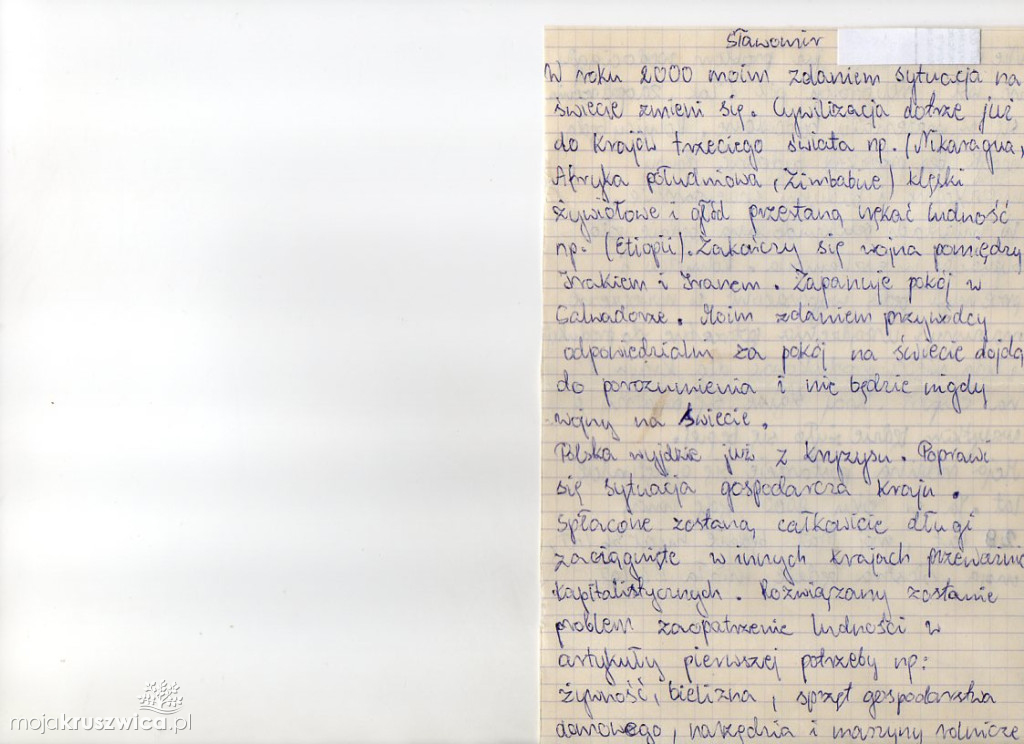 Sławomir
W roku 2000 moim zdaniem sytuacja na
świecie zmieni się. Cywilizacja dotrze już
do krajów trzeciego świata np. (Nikaragua,
Afryka południowa, Zimbabwe) klęski
żywiołowe i głód przestaną nękać ludność
np. (Etiopii). Zakończy się wojna pomiędzy
Irakiem i Iranem. Zapanuje pokój w
Salwadorze. Moim zdaniem przywódcy
odpowiedzialni za pokój na świecie dojdą
do porozumienia i nie będzie nigdy
wojny na świecie.
Polska wyjdzie już z kryzysu. Poprawi
się sytuacja gospodarcza kraju.
Spłacone zostaną całkowicie długi
zaciągnięte w innych krajach przeważnie
kapitalistycznych. Rozwiązany zostanie
problem zaopatrzenie ludności w
artykuły pierwszej potrzeby np:
żywność, bielizna, sprzęt gospodarstwa
domowego, narzędzia i maszyny rolnicze
mojakruszwica.pl